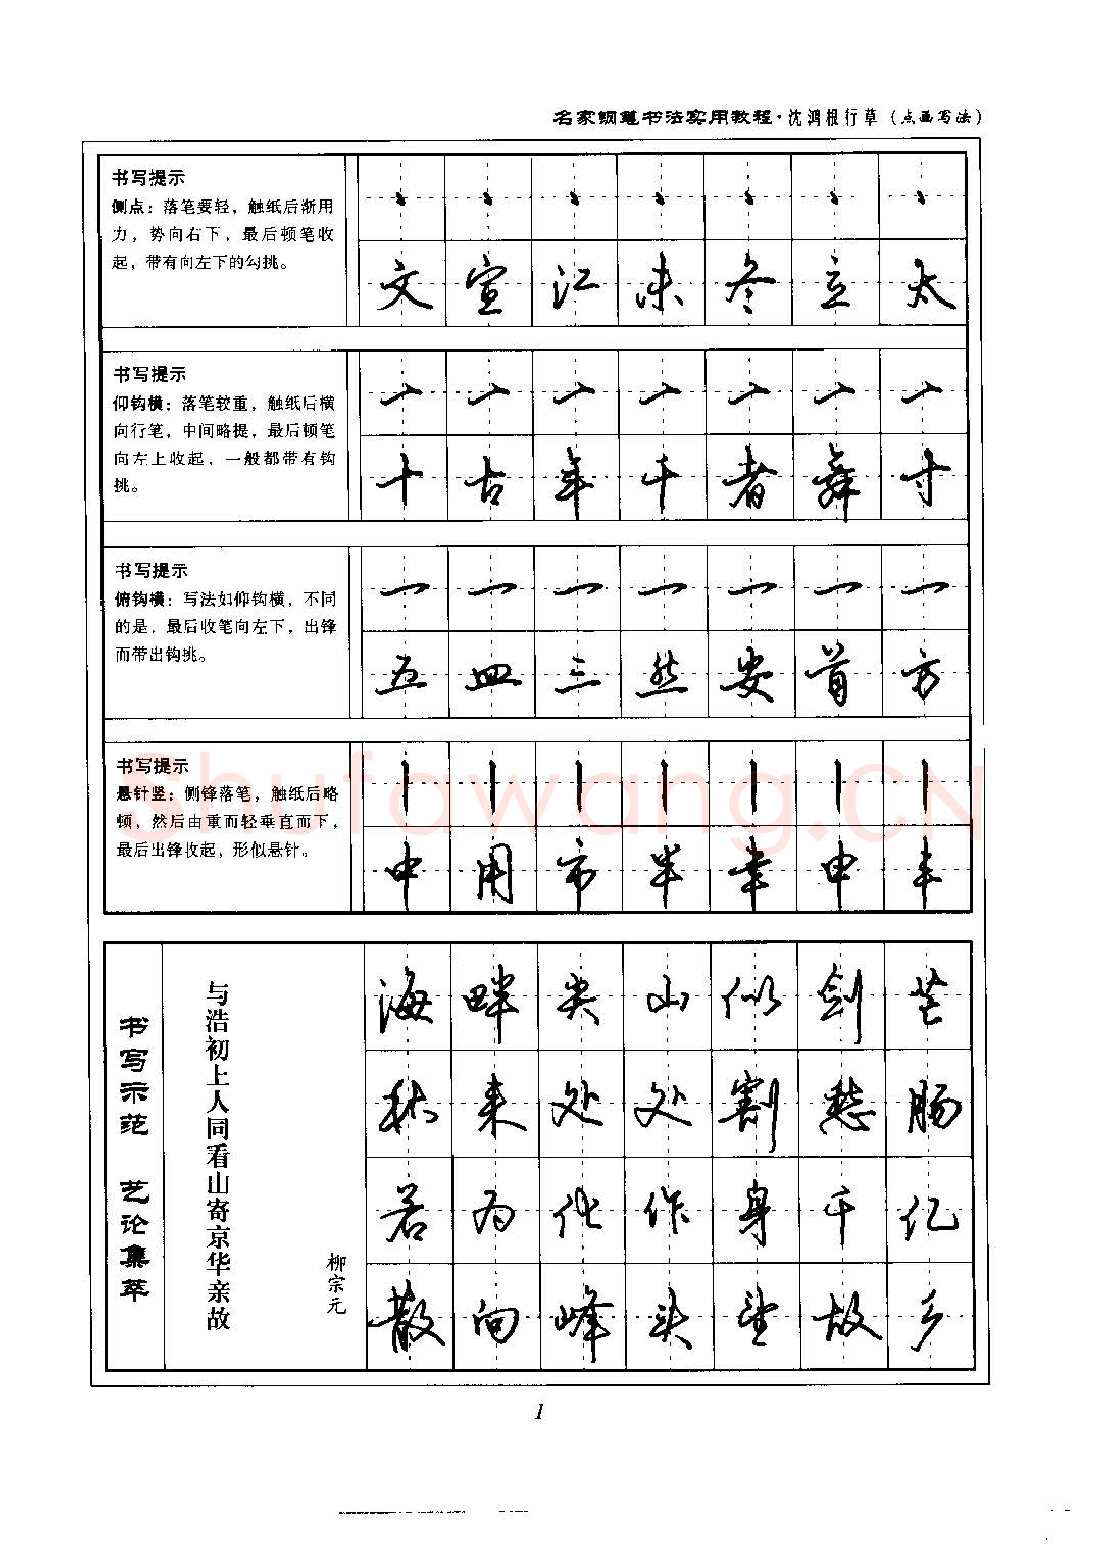 名家钢笔书法实用教程·沈鸿根行草（点画写法）
书写提示
侧点：落笔要轻，触纸后渐用
力，势向右下，最后顿笔收
起，带有向左下的勾挑。
文宣江未冬立太
书写提示
仰钩横：落笔较重，触纸后横
向行笔，中间略提，最后顿笔
向左上收起，一般都带有钩
挑。
十古年千者舞寸
书写提示
俯钩横：写法如仰钩横，不同
的是，最后收笔向左下，出锋
而带出钩挑。
一一一一一一一
五皿三然安首方
书写提示
悬针竖：侧锋落笔，触纸后略
顿，然后由重而轻垂直而下，
最后出锋收起，形似悬针。
中用市半幸申丰
Shufawang.CN
书写示范 艺论集萃
与浩初上人同看山寄京华亲故
柳宗元
海畔尖山似剑芒
秋来处处割愁肠
若为化作身千亿
散向峰头望故乡
1